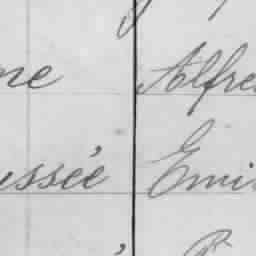 ne Alfre
ussée Emi